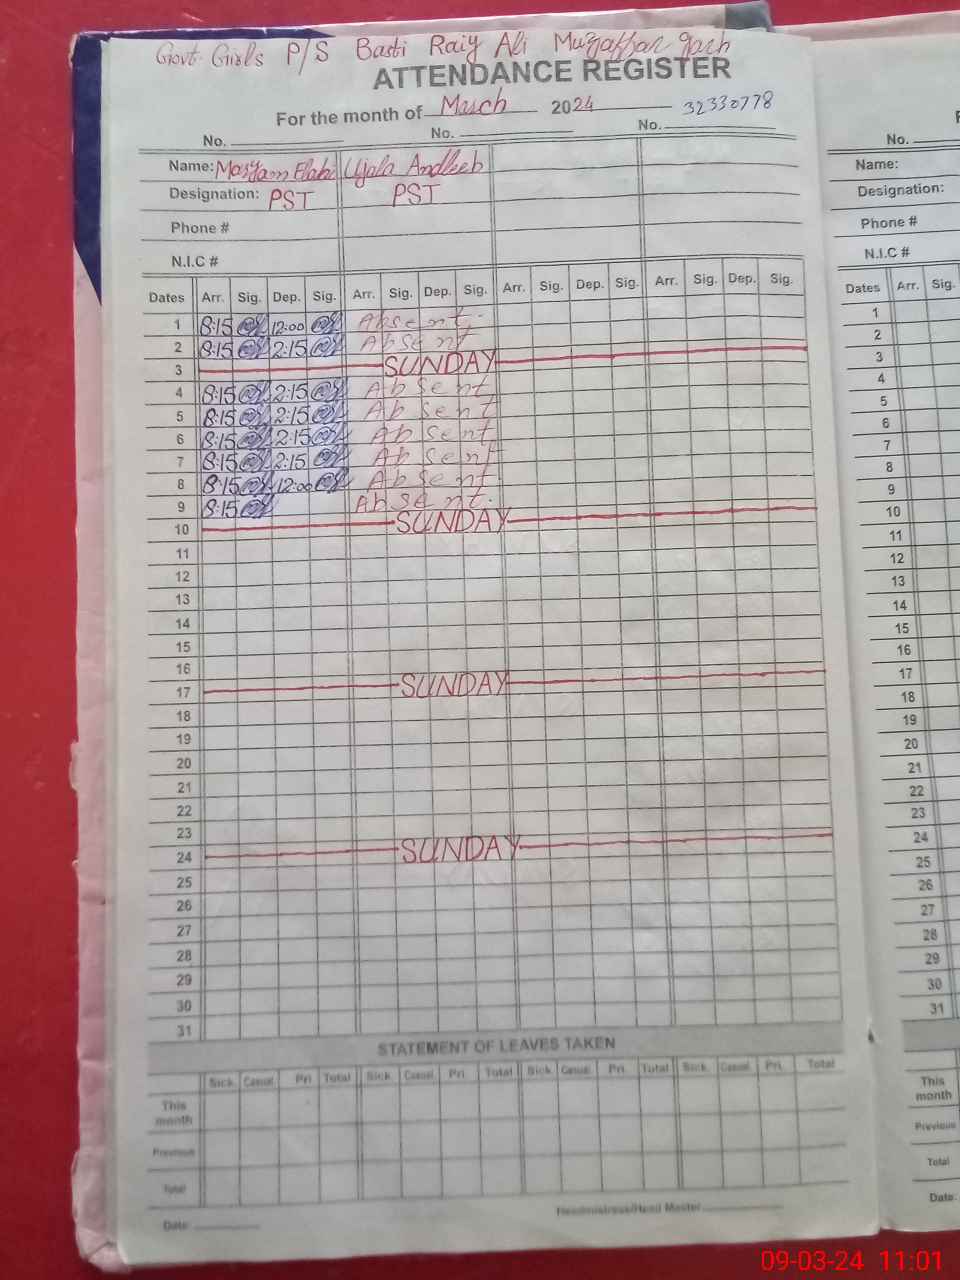 Govt. Girls P/S Basti Raiy Ali Muzaffar garh
ATTENDANCE REGISTER
For the month of March 2024 32330778
No. No. No.
Name: Maryam Elahi Ujala Andleeb
Designation: PST PST
Phone #
N.I.C #
Dates Arr. Sig. Dep. Sig. Arr. Sig. Dep. Sig. Arr. Sig. Dep. Sig. Arr. Sig. Dep. Sig.
1 8:15 12:00 Absent.
2 8:15 2:15 Absent
3 SUNDAY
4 8:15 2:15 Absent
5 8:15 2:15 Absent
6 8:15 2:15 Absent
7 8:15 2:15 Absent
8 8:15 12:00 Absent
9 8:15 Absent.
10 SUNDAY
11
12
13
14
15
16
17 SUNDAY
18
19
20
21
22
23
24 SUNDAY
25
26
27
28
29
30
31
STATEMENT OF LEAVES TAKEN
Sick. Casual. Pri Total Sick. Casual. Pri. Total Sick. Casual. Pri. Total Sick. Casual. Pri. Total
This month
Previous
Total
Date: Headmistress/Head Master
No.
Name:
Designation:
Phone #
N.I.C #
Dates Arr. Sig.
1
2
3
4
5
6
7
8
9
10
11
12
13
14
15
16
17
18
19
20
21
22
23
24
25
26
27
28
29
30
31
This month
Previous
Total
Date:
09-03-24 11:01